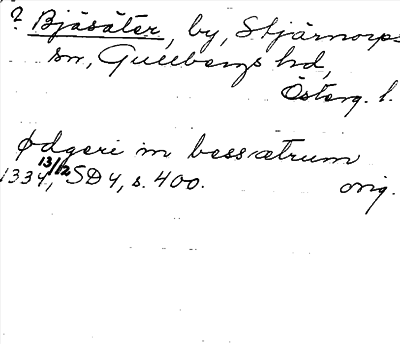 ? Bjäsäter, by, Stjärnorps
sn, Gullbergs hd,
Österg. l.
ødgeri in bessætrum
1334 13/12, SD 4, s. 400. orig.